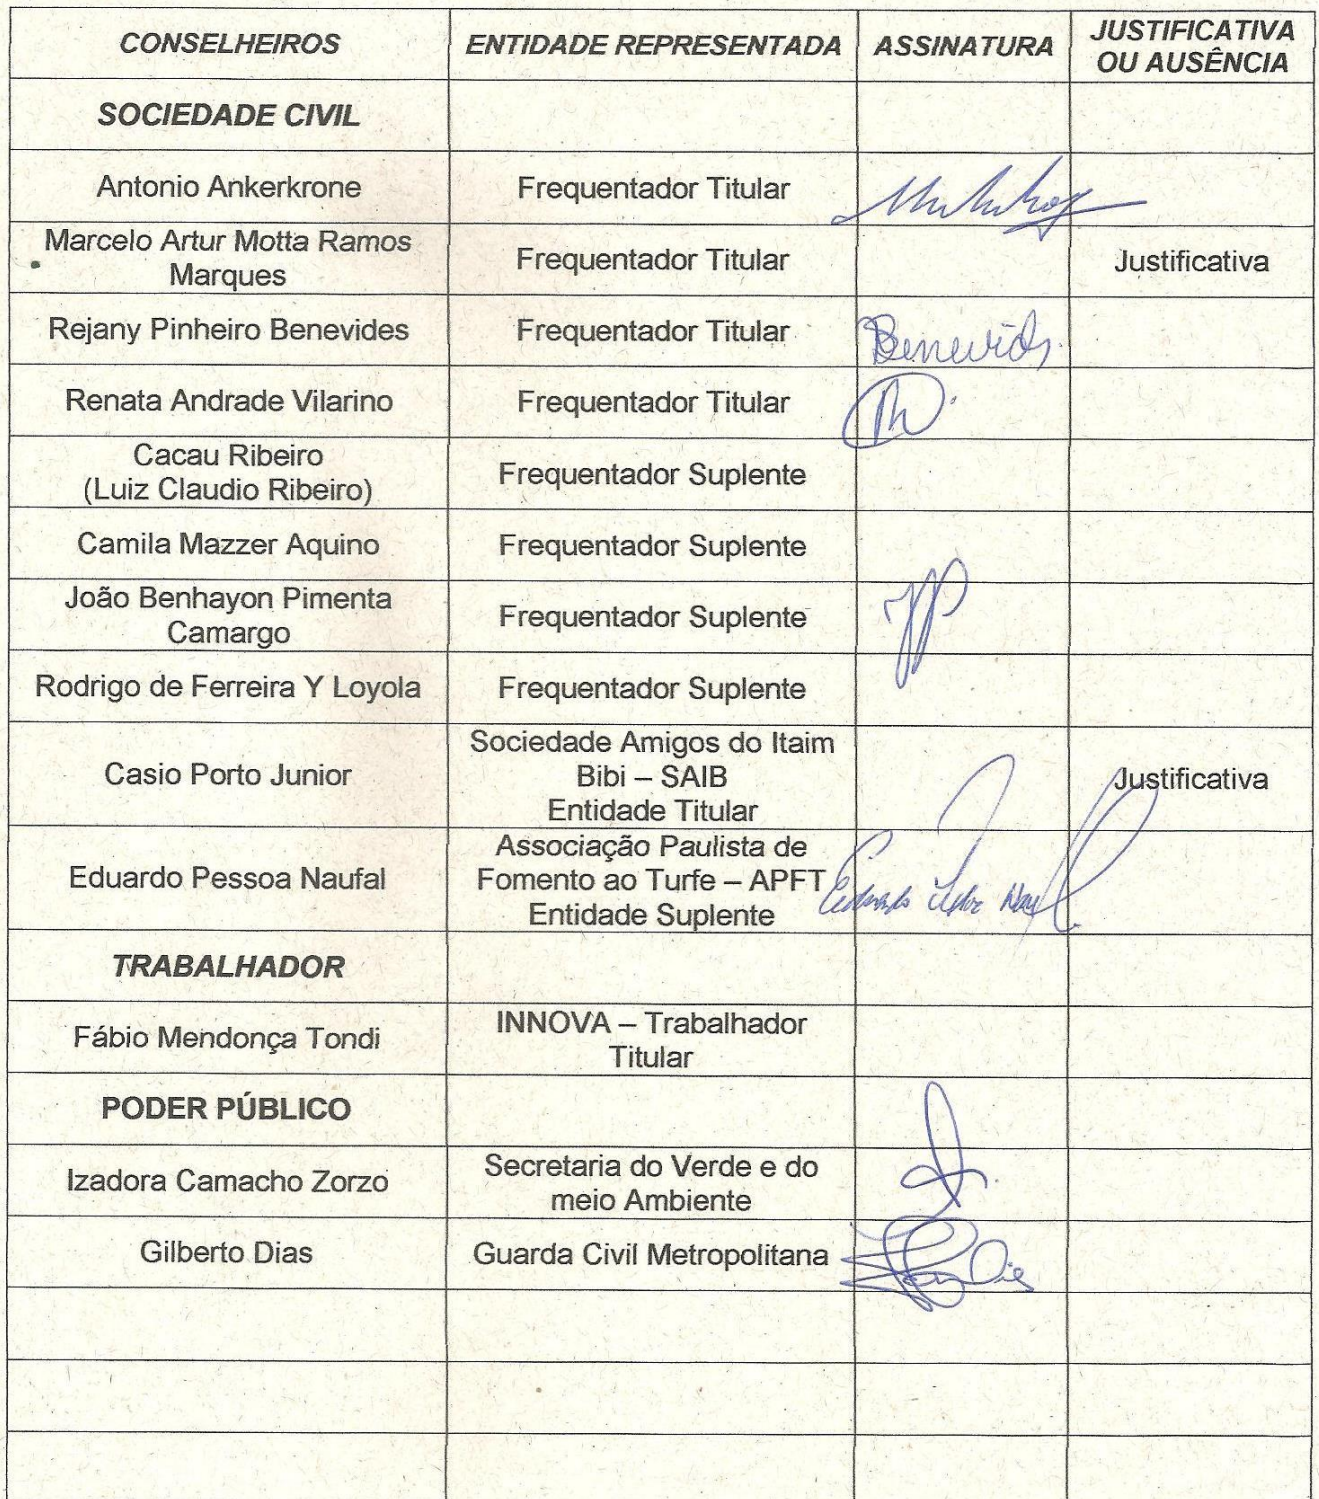 CONSELHEIROS ENTIDADE REPRESENTADA ASSINATURA JUSTIFICATIVA
OU AUSÊNCIA
SOCIEDADE CIVIL
Antonio Ankerkrone Frequentador Titular
Marcelo Artur Motta Ramos
Marques Frequentador Titular Justificativa
Rejany Pinheiro Benevides Frequentador Titular Benevides
Renata Andrade Vilarino Frequentador Titular
Cacau Ribeiro
(Luiz Claudio Ribeiro) Frequentador Suplente
Camila Mazzer Aquino Frequentador Suplente
João Benhayon Pimenta
Camargo Frequentador Suplente
Rodrigo de Ferreira Y Loyola Frequentador Suplente
Casio Porto Junior Sociedade Amigos do Itaim
Bibi – SAIB
Entidade Titular Justificativa
Eduardo Pessoa Naufal Associação Paulista de
Fomento ao Turfe – APFT
Entidade Suplente Eduardo
TRABALHADOR
Fábio Mendonça Tondi INNOVA – Trabalhador
Titular
PODER PÚBLICO
Izadora Camacho Zorzo Secretaria do Verde e do
meio Ambiente
Gilberto Dias Guarda Civil Metropolitana Dias